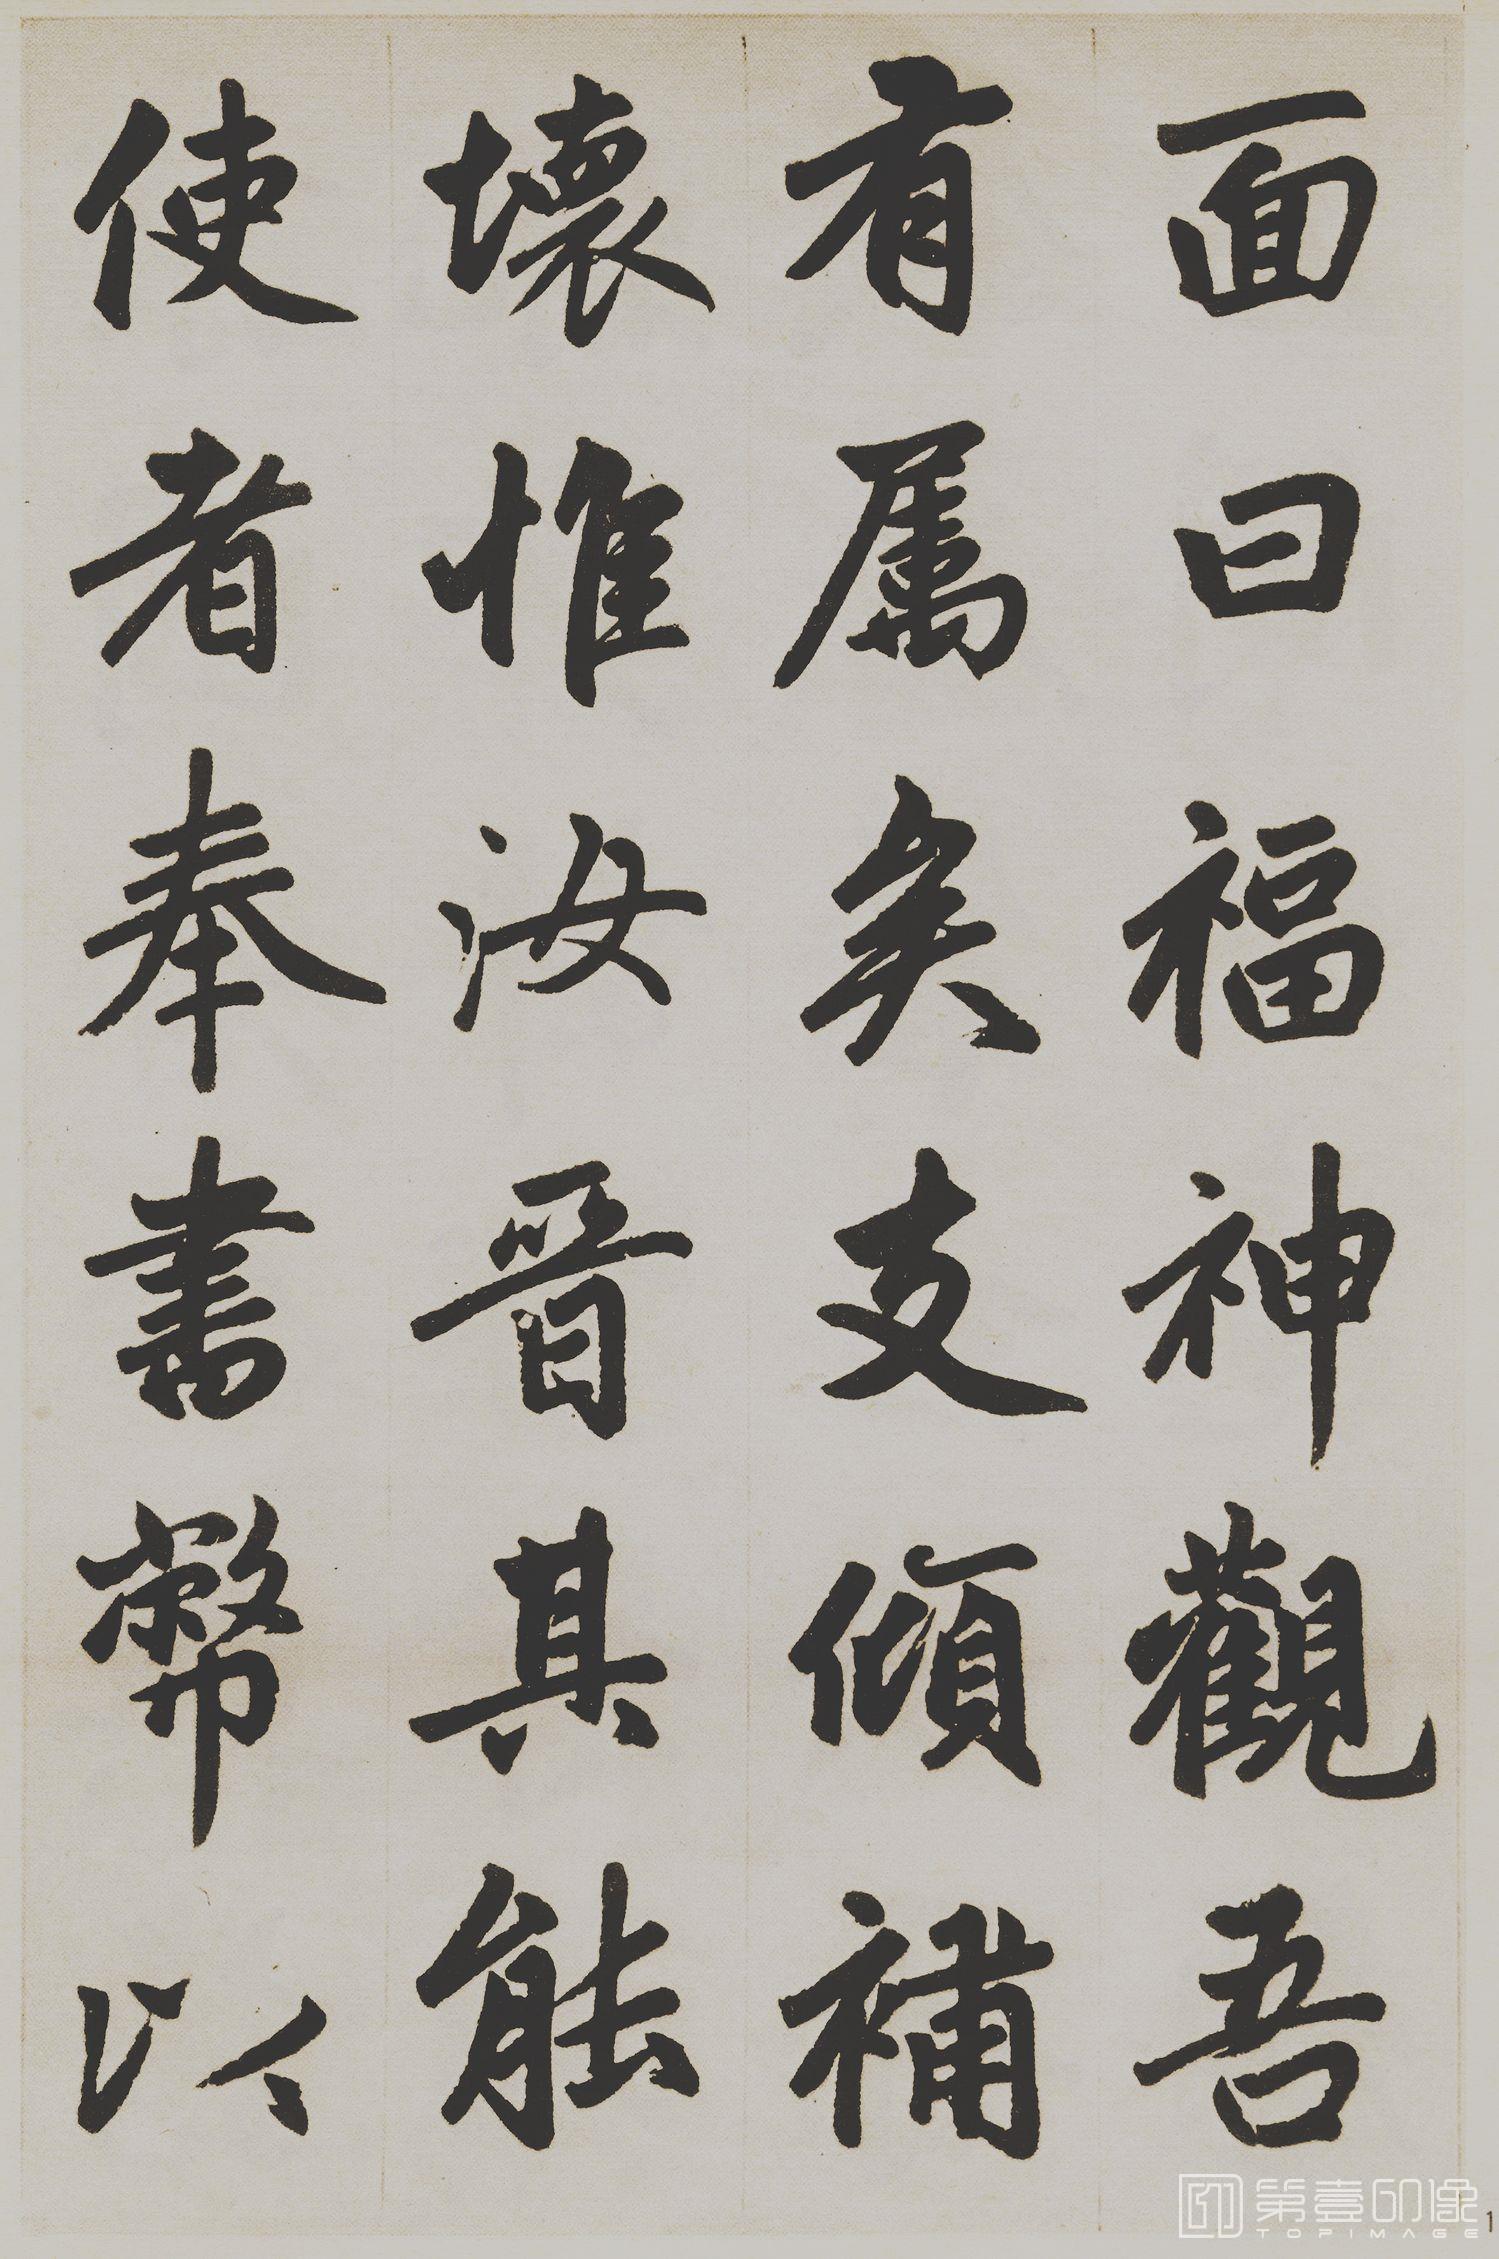 面曰福神觀吾
有属矣支傾補
壞惟汝晉其能
使者奉書幣以
第壹印像
TOPIMAGE
1